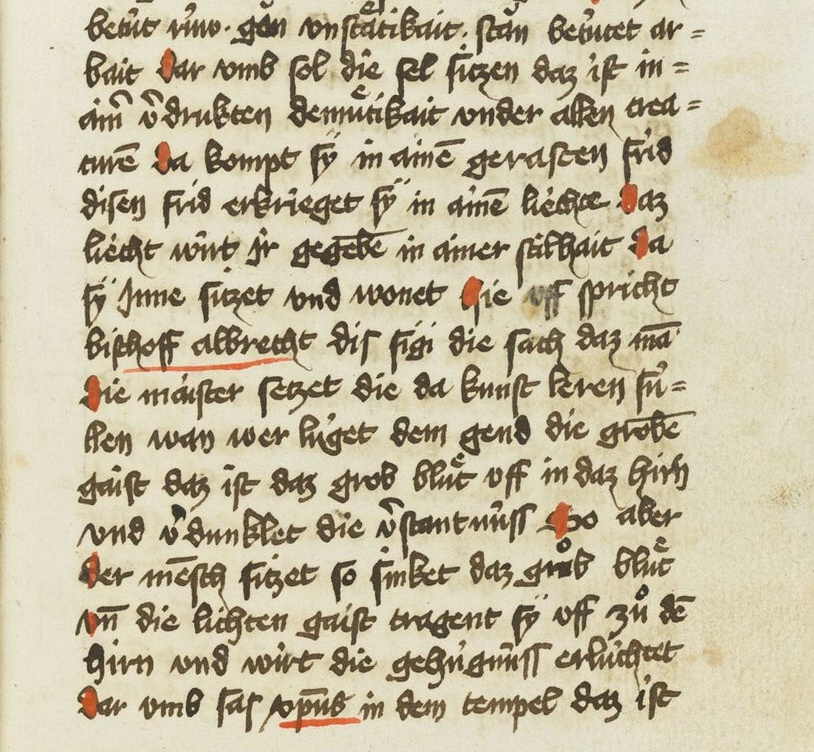 betùt rùw · gǒn vnstätikait · stän betùtet ar=
bait Dar vmb sol die sel sitzen daz ist in=
aim̄ v̄drukten demuͤtikait vnder allen crea=
turē Da kompt sÿ in ainē gerasten frid
disen frid erkrieget sÿ in ainē liechte Daz
liecht wirt Jr gegebē in ainer stilhait Da
sÿ Jnne sitzet vnd wonet Hie vff spricht
bischoff albrecht dis sigi die sach daz mā
Die maister setzet die da kunst leren sù=
llen wan wer lùget dem gend die grobē
gaist daz ist daz grob bluͤt vff in daz hirn
vnd v̄dunklet die v̄stantnùss So aber
Der mēsch sitzet so sinket daz groͮb bluͤt
vn̄ die lichten gaist tragent sÿ vff zuͦ dē
hirn vnd wirt die gehùgnùss erlùchtet
Dar vmb sas xp̄us in dem tempel daz ist